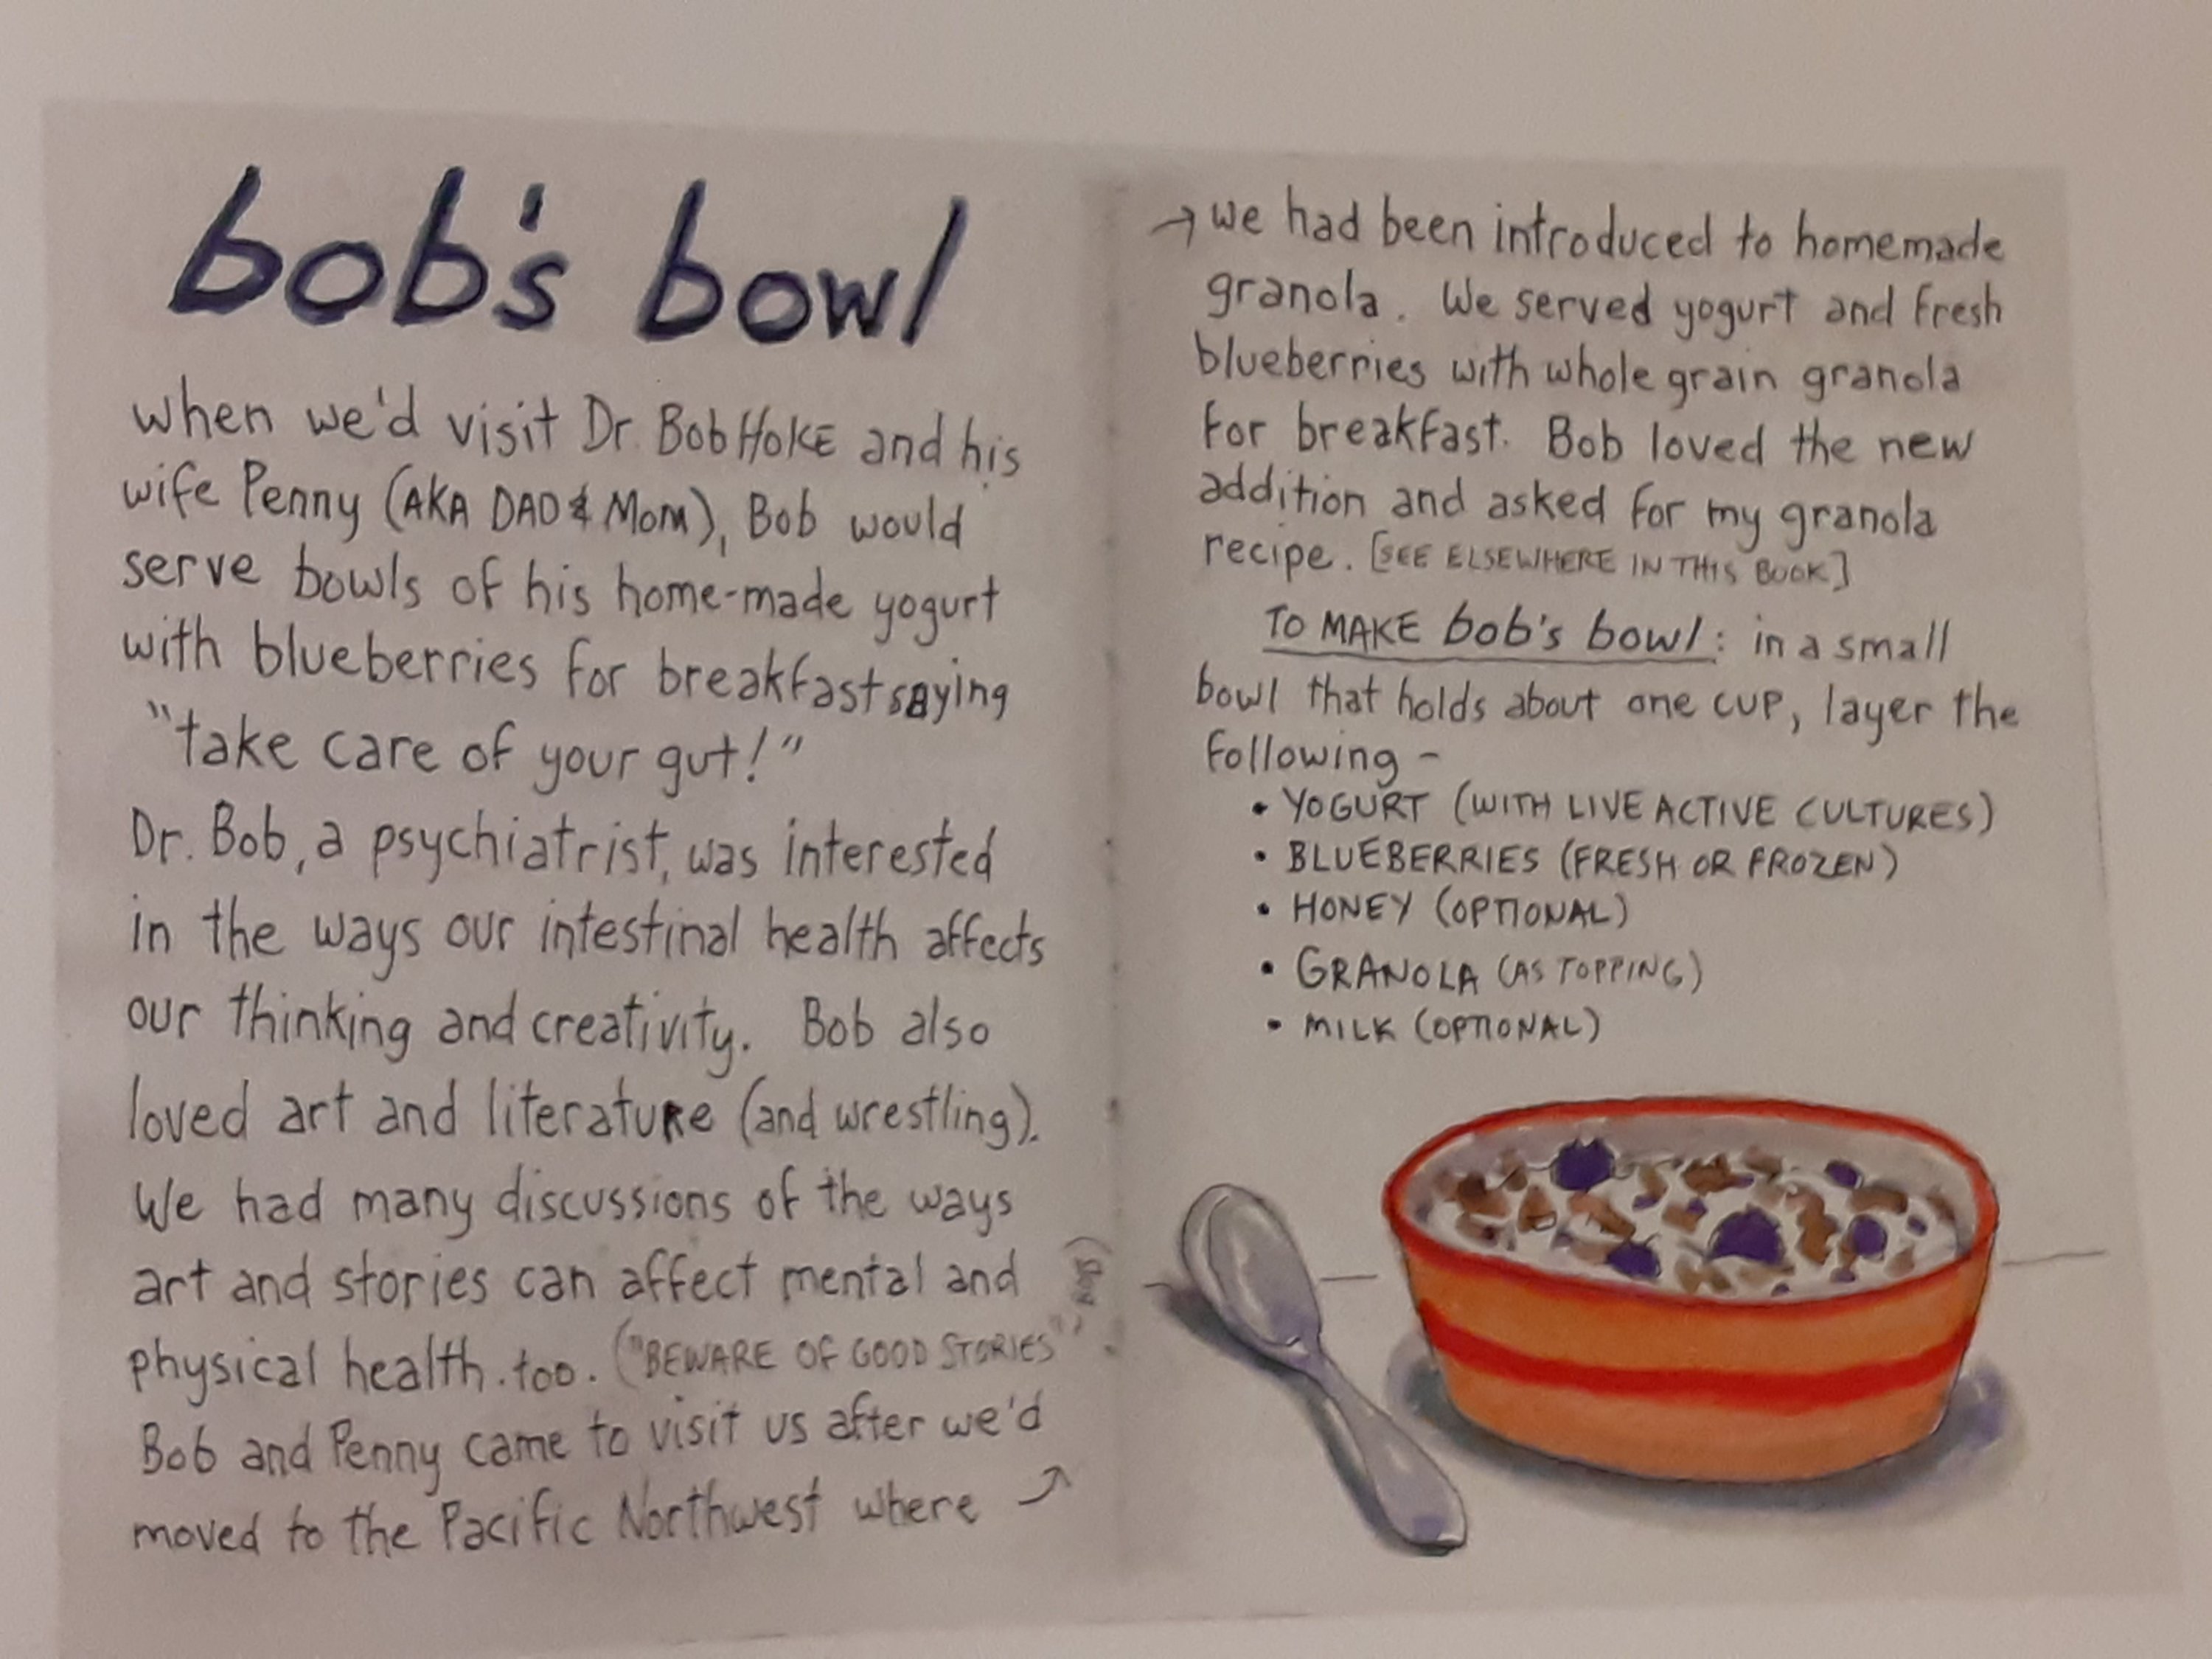 bob's bowl
when we'd visit Dr. Bob HOKE and his
wife Penny (AKA DAD & MOM), Bob would
serve bowls of his home-made yogurt
with blueberries for breakfast saying
"take care of your gut!"
Dr. Bob, a psychiatrist, was interested
in the ways our intestinal health affects
our thinking and creativity. Bob also
loved art and literature (and wrestling).
We had many discussions of the ways
art and stories can affect mental and
physical health.too. ("BEWARE OF GOOD STORIES"
Bob and Penny came to visit us after we'd
moved to the Pacific Northwest where →
→ we had been introduced to homemade
granola. We served yogurt and fresh
blueberries with whole grain granola
for breakfast. Bob loved the new
addition and asked for my granola
recipe. [SEE ELSEWHERE IN THIS BOOK]
TO MAKE bob's bowl: in a small
bowl that holds about one cup, layer the
following -
• YOGURT (WITH LIVE ACTIVE CULTURES)
• BLUEBERRIES (FRESH OR FROZEN)
• HONEY (OPTIONAL)
• GRANOLA (AS TOPPING)
• MILK (OPTIONAL)